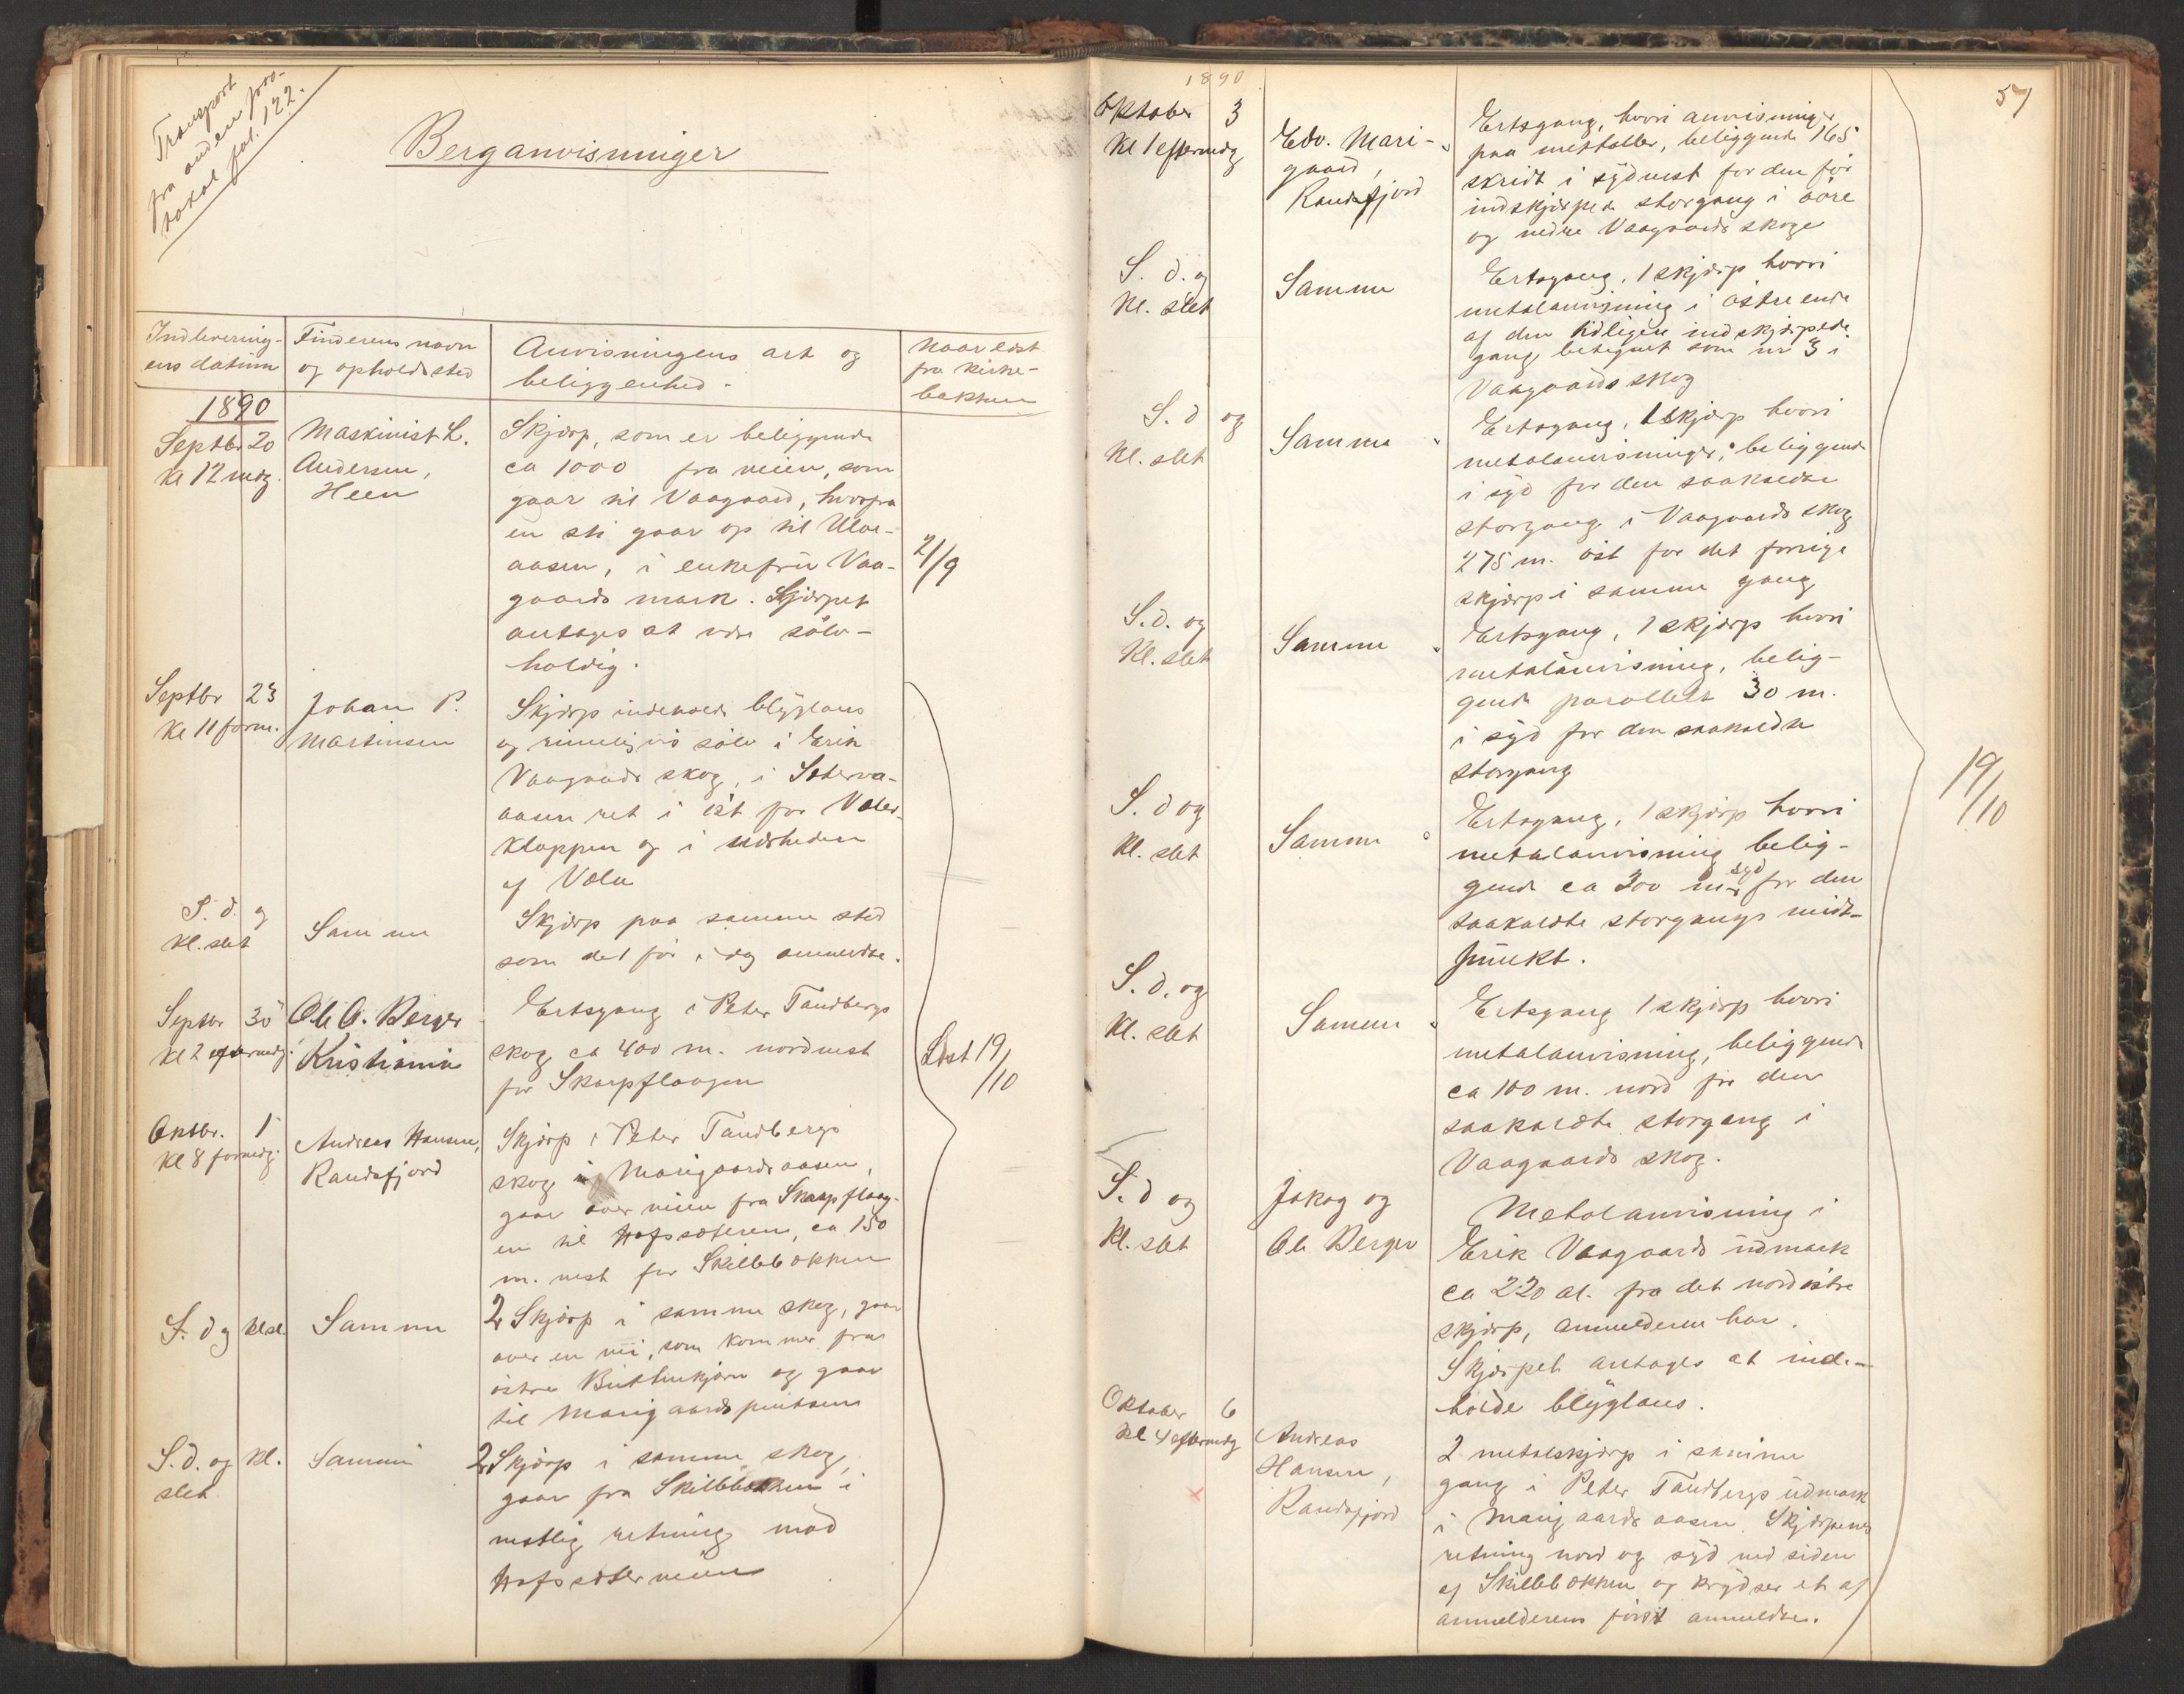 Transport
fra anden pro-
tokol fol. 122.
Berganvisninger
Indlevering-
ens datum
Finderens navn
og opholdssted
Anvisningens art og
beliggenhed.
Naar læst
fra kirke-
bakken
1890
Septbr 20
Kl 12 mdg.
Maskinist L.
Andersen,
Heen
Skjærp, som er beliggende
ca 1000 fra veien, som
gaar til Vaagaard, hvorfra
en sti gaar op til Ulve-
aasen, i enkefru Vaa-
gaards mark. Skjærpet
antages at være sølv-
holdig.
21/9
Septbr 23
Kl 11 form.
Johan P.
Martinsen
Skjærp indehold. blyglans
og rimeligvis sølv i Erik
Vaagaards skog, i Sæterva-
aasen ret i øst for Væler-
kloppen og i nærheden
af Væla
S. d. og
Kl. slet
Samme
Skjærp paa samme sted
som det før i dag anmeldte.
Septbr 30
Kl 2 eftermdg.
Ole O. Berger
Kristiania
Ertsgang i Peter Tandbergs
skog ca 400 m. nordvest
for Skarpflaagen
Læst 19/10
Oktbr. 1
Kl 8 formdg.
Andreas Hansen,
Randsfjord
Skjærp i Peter Tandbergs
skog i Marigaardsaasen,
gaar over veien fra Skarpflaag-
en til Hofssæteren, ca 150
m. vest for Skillebækken
S. d og Kl sl.
Samme
2 Skjærp i samme skog, gaar
over en vei, som kommer fra
østre Buttenkjern og gaar
til Marigaardsputten
S. d. og Kl.
slet
Samme
2 Skjærp i samme skog,
gaar fra Skillebækken i
vestlig retning mod
Hofssæterveien
57
1890
Oktober 3
Kl 1 eftermdg
Edv. Mari-
gaard,
Randsfjord
Ertsgang, hvori anvisninger
paa mettaller, beliggende 165
skridt i sydvest for den før
indskjærpede storgang i øvre
og nedre Vaagaards skoge
S. d. og
Kl. slet
Samme
Ertsgang, 1 skjærp hvori
metalanvisning i østre ende
af den tidligere indskjærpede
gang betegnet som nr 3 i
Vaagaards skog
S. d og
Kl. slet
Samme
Ertsgang, 1 skjærp hvori
metalanvisninger, beliggende
i syd for den saakaldte
storgang i Vaagaards skog
275 m. øst for det forrige
skjærp i samme gang
S. d. og
Kl. slet
Samme
Ertsgang, 1 skjærp hvori
metalanvisning, belig-
gende parallelt 30 m.
i syd for den saakaldte
storgang
S. d og
Kl. slet
Samme
Ertsgang, 1 skjærp hvori
metalanvisning belig-
gende ca 300 m. syd for den
saakaldte storgangs midt-
punkt.
19/10
S. d. og
Kl. slet
Samme
Ertsgang 1 skjærp hvori
metalanvisning, beliggende
ca 100 m. nord for den
saakaldte storgang i
Vaagaards skog.
S. d og
Kl. slet
Jakog og
Ole Berger
Metalanvisning i
Erik Vaagaards udmark
ca 220 al. fra det nordøstre
skjærp, anmelderen har.
Skjærpet antages at inde-
holde blyglans.
Oktober 6
Kl 4 eftermdg
Andreas
Hansen,
Randsfjord
2 metalskjærp i samme
gang i Peter Tandbergs udmark
i Marigaards aasen. Skjærpenes
retning nord og syd ved siden
af Skillebækken og krydser et af
anmelderens først anmeldte.